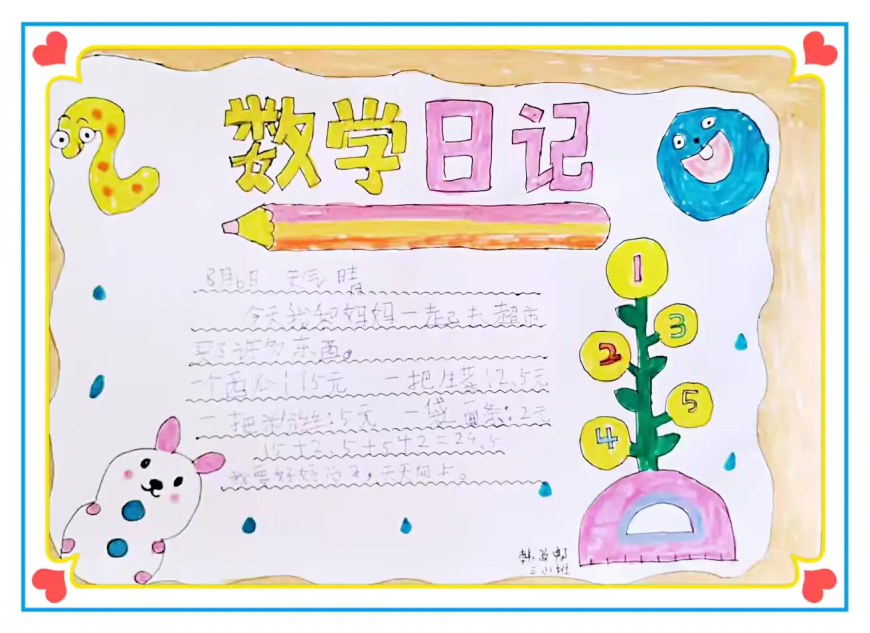 数学日记
8月6日 天气 晴
今天我和妈妈一起去超市
买了许多东西。
一个西心:15元 一把生菜:2.5元
一把粉丝:5元 一袋面条:2元
15+2.5+5+2=24.5
我要好好学习,天天向上。
1
3
2
5
4
三(1)班